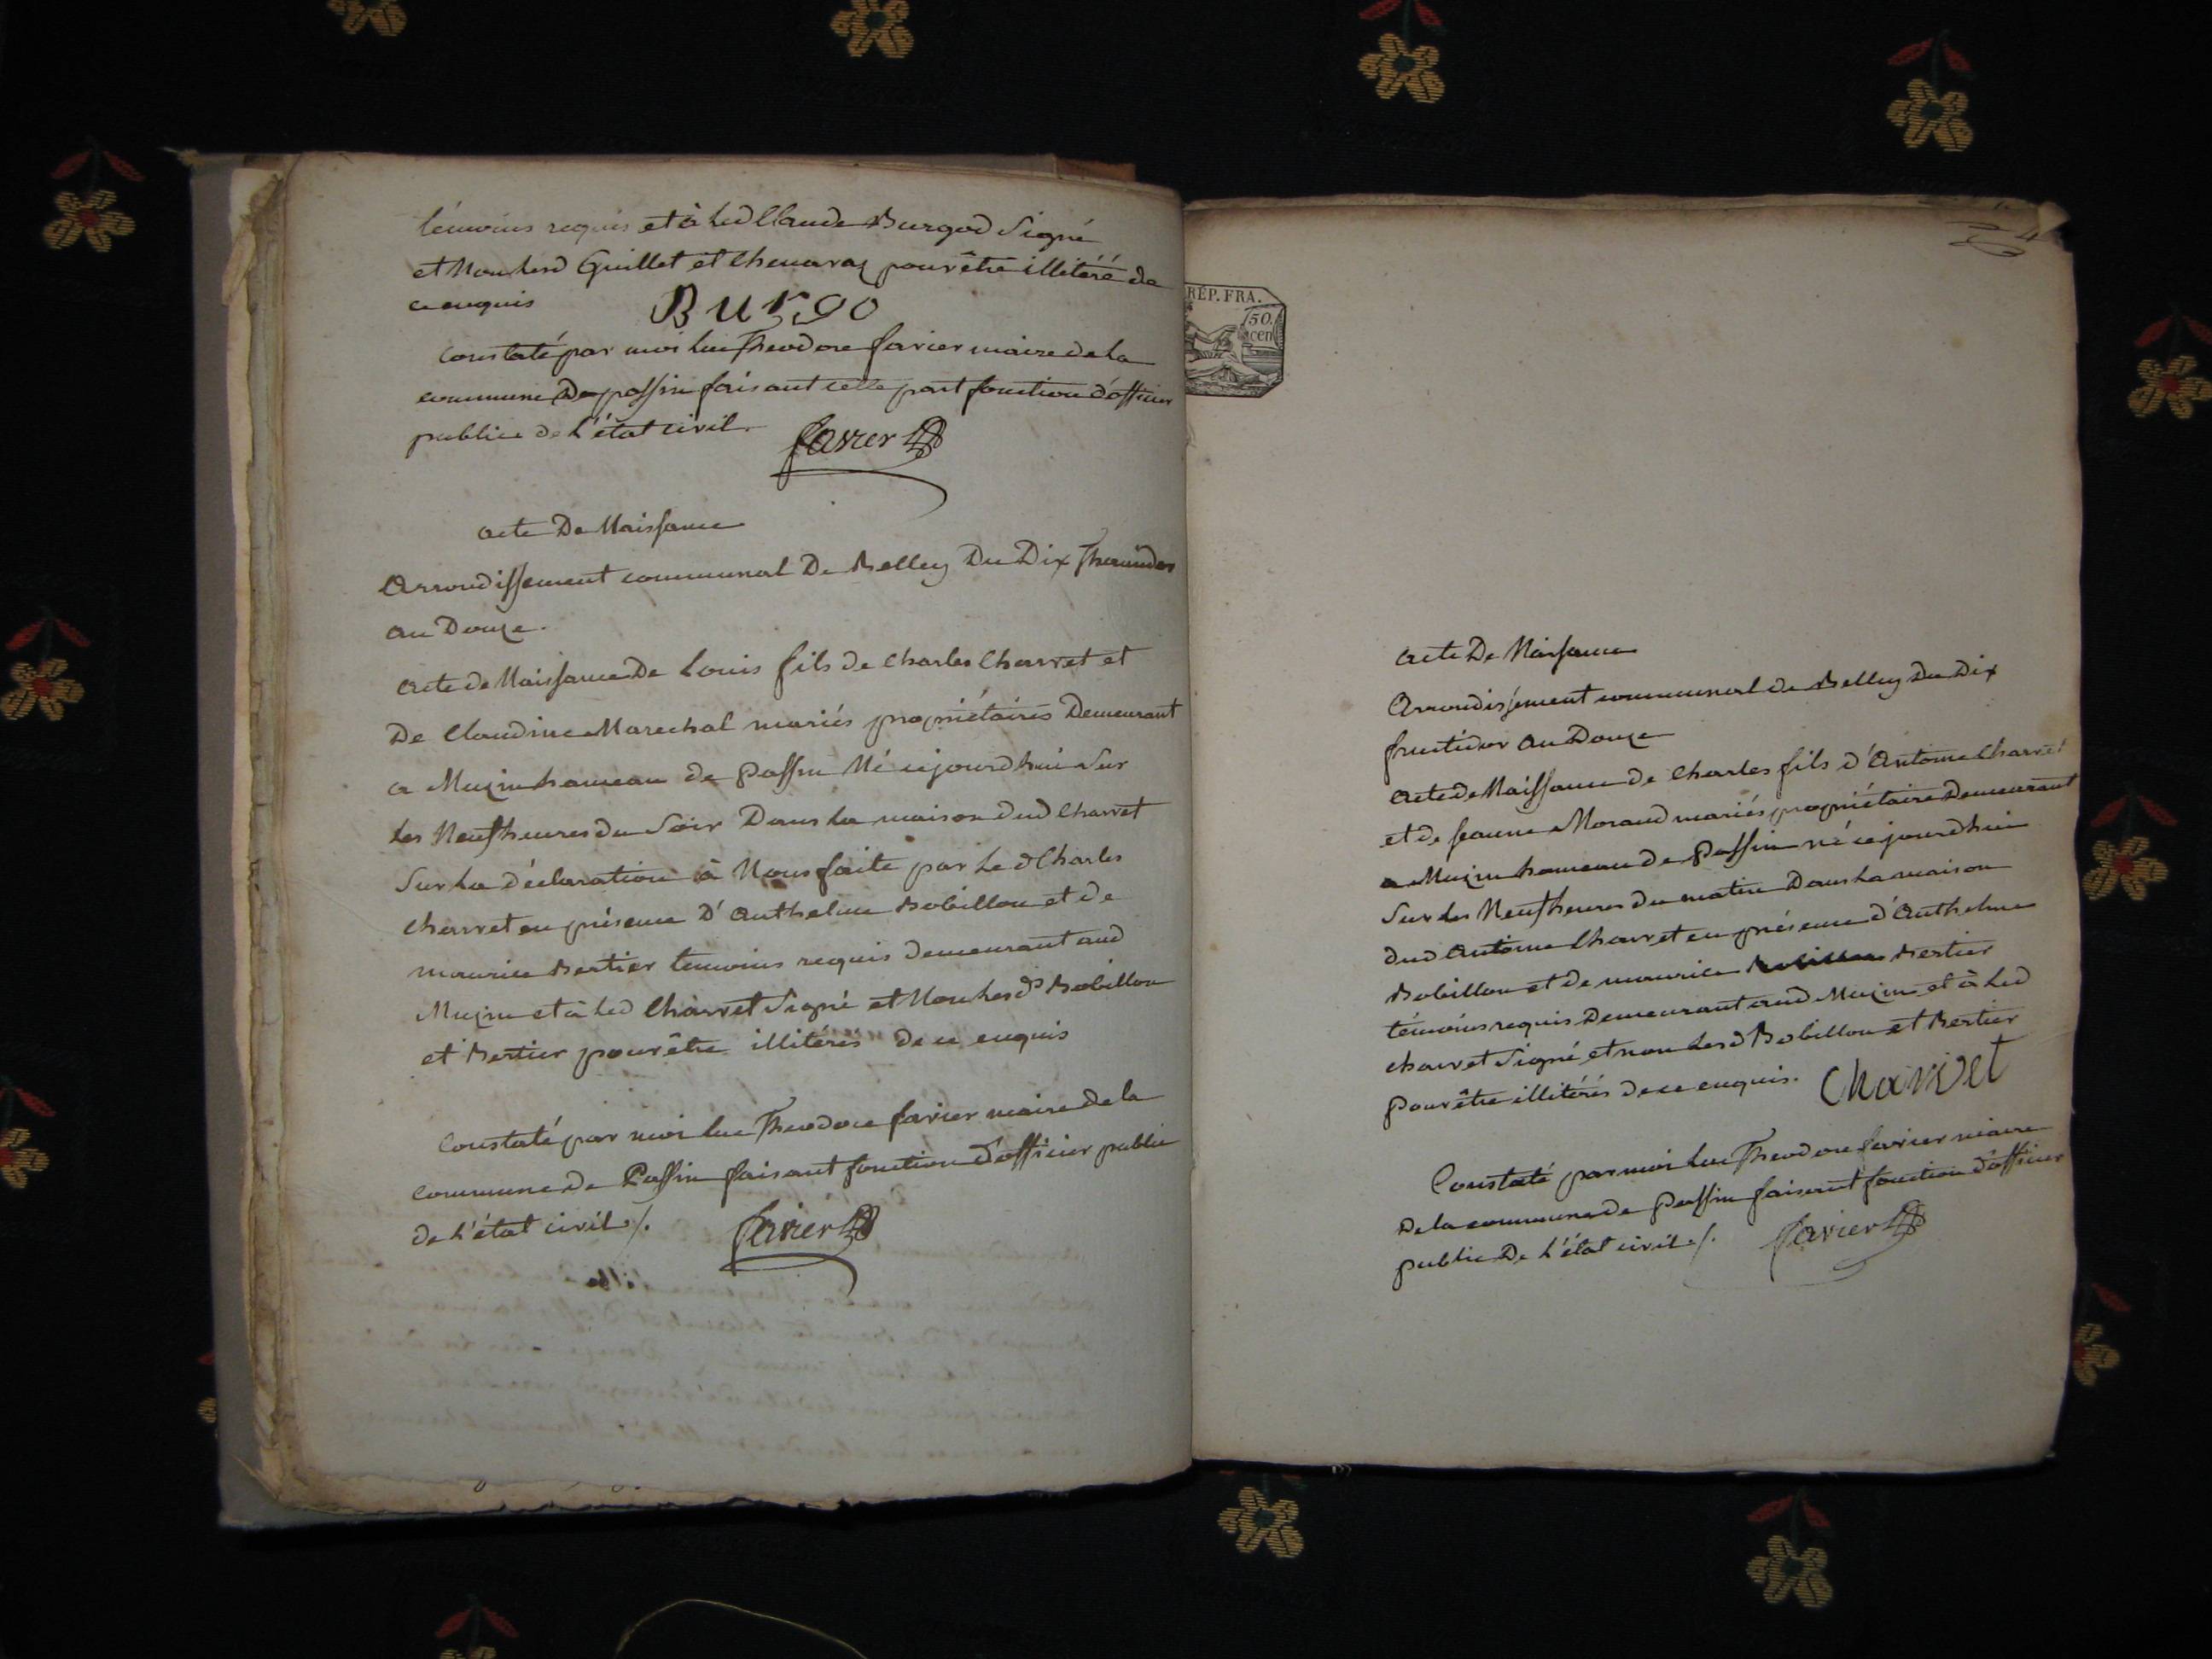 témoins requis et à led Claude Burgod Signé
et Non lesd Guillet et Chenavaz pour être illitéré de
ce enquis
Burgo
Constaté par moi luc Theodore favier maire de la
commune De passin faisant celle part fonction d'officier
public de l'état civil.
favier
acte De Naissance
Arrondissement communal De Belley Du Dix Thermidor
an Douze.
Acte de Naissance De Louis fils de charles Charvet et
De Claudine Marechal mariés propriétaires Demeurant
a Muzin hameau de Passin Né cejourdhui Sur
les Neuf heures du Soir Dans la maison dud Charvet
Sur la déclaration à Nous faite par le d Charles
Charvet en présence D'Anthelme Bobillon et de
maurice Bertier temoins requis demeurant aud
Muzin et à led Charvet Signé et Non lesds Bobillon
et Bertier pour être illitérés de ce enquis
Constaté par moi luc Theodore favier maire de la
commune de Passin faisant fonction d'officier public
de l'état civil ./.
favier
RÉP. FRA.
50.
cen
acte De Naissance
Arrondissement communal de Belley Du Dix
fructidor an Douze
Acte de Naissance de Charles fils d'Antoine Charvet
et de Jeanne Morand mariés propriétaire Demeurant
a Muzin hameau de Passin né cejourdhui
Sur les Neuf heures du matin Dans la maison
dud Antoine Charvet en présence d'Anthelme
Bobillon et de maurice Bertier
témoins requis Demeurant aud Muzin et à led
charvet Signé et non lesd Bobillon et Bertier
pour être illitérés de ce enquis.
Charvet
Constaté par moi luc Theodore favier maire
De la commune de Passin faisant fonction d'officier
public De l'état civil ./.
favier